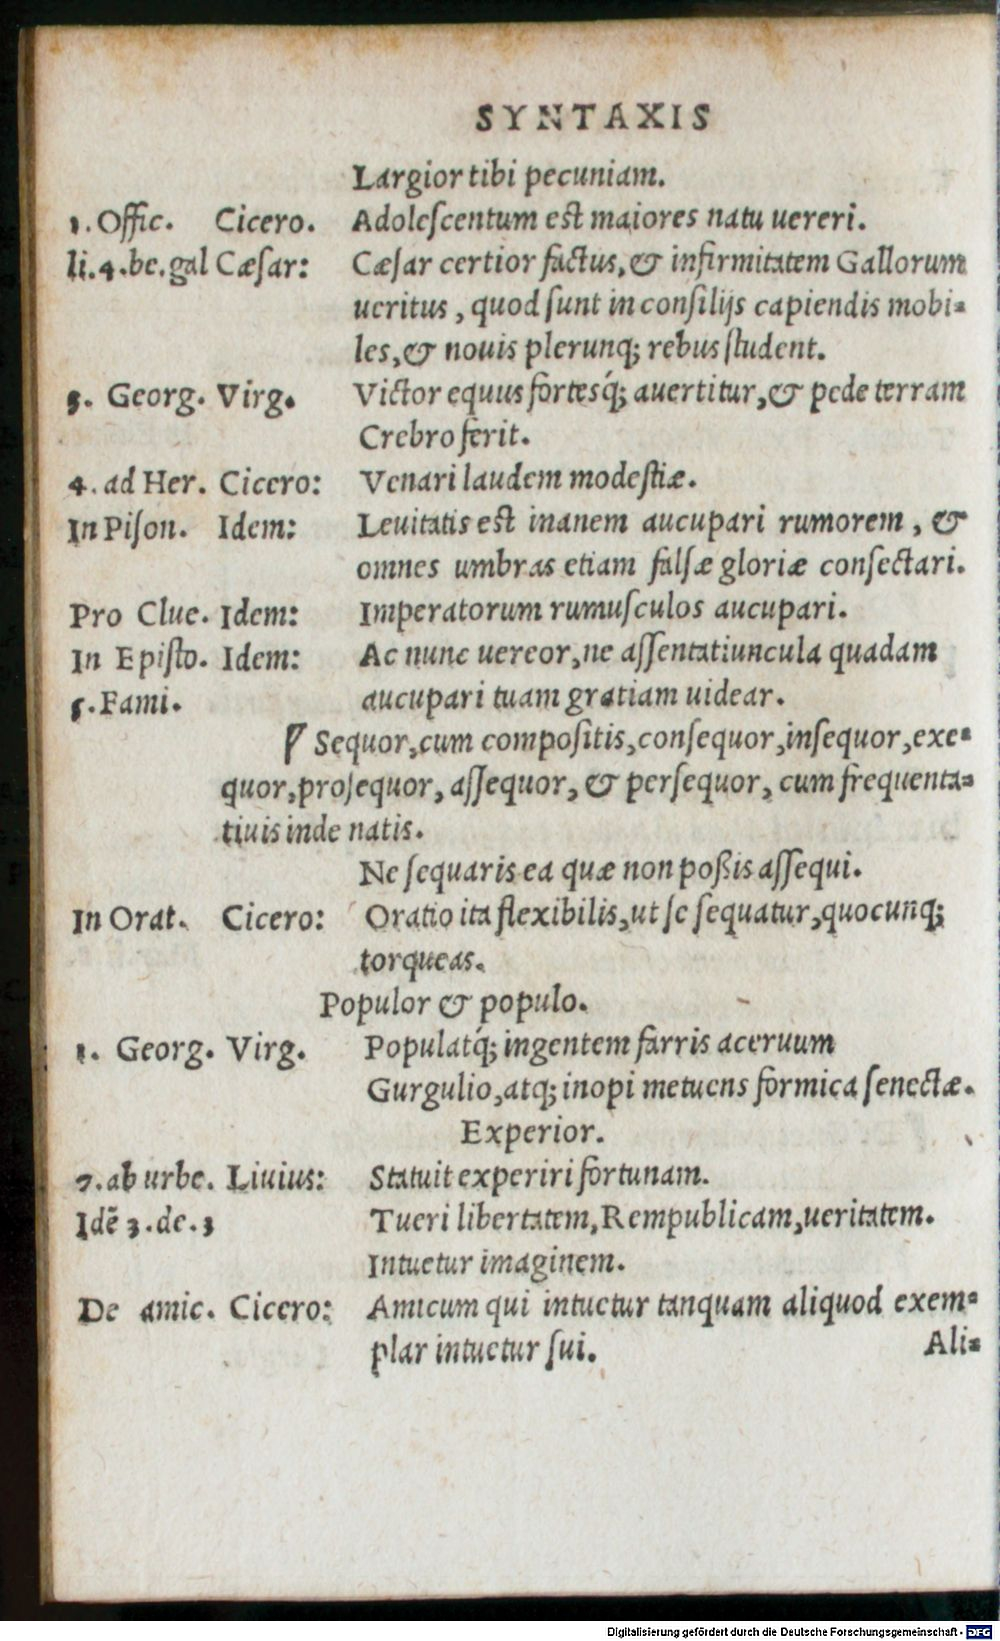 SYNTAXIS
Largior tibi pecuniam.
1. Offic. Cicero. Adolescentum est maiores natu uereri.
li.4.be.gal Cæsar: Cæsar certior factus, & infirmitatem Gallorum
ueritus, quod sunt in consilijs capiendis mobi=
les, & nouis plerunq; rebus student.
3. Georg. Virg. Victor equus fortesq́; auertitur, & pede terram
Crebro ferit.
4. ad Her. Cicero: Venari laudem modestiæ.
In Pison. Idem: Leuitatis est inanem aucupari rumorem, &
omnes umbras etiam falsæ gloriæ consectari.
Pro Clue. Idem: Imperatorum rumusculos aucupari.
In Episto. Idem: Ac nunc uereor, ne assentatiuncula quadam
5. Fami. aucupari tuam gratiam uidear.
¶ Sequor, cum compositis, consequor, insequor, exe=
quor, prosequor, assequor, & persequor, cum frequenta=
tiuis inde natis.
Ne sequaris ea quæ non poßis assequi.
In Orat. Cicero: Oratio ita flexibilis, ut se sequatur, quocunq;
torqueas.
Populor & populo.
1. Georg. Virg. Populatq́; ingentem farris aceruum
Gurgulio, atq; inopi metuens formica senectæ.
Experior.
7. ab urbe. Liuius: Statuit experiri fortunam.
Idē 3. de. 3 Tueri libertatem, Rempublicam, ueritatem.
Intuetur imaginem.
De amic. Cicero: Amicum qui intuetur tanquam aliquod exem=
plar intuetur sui. Ali=
Digitalisierung gefördert durch die Deutsche Forschungsgemeinschaft - DFG